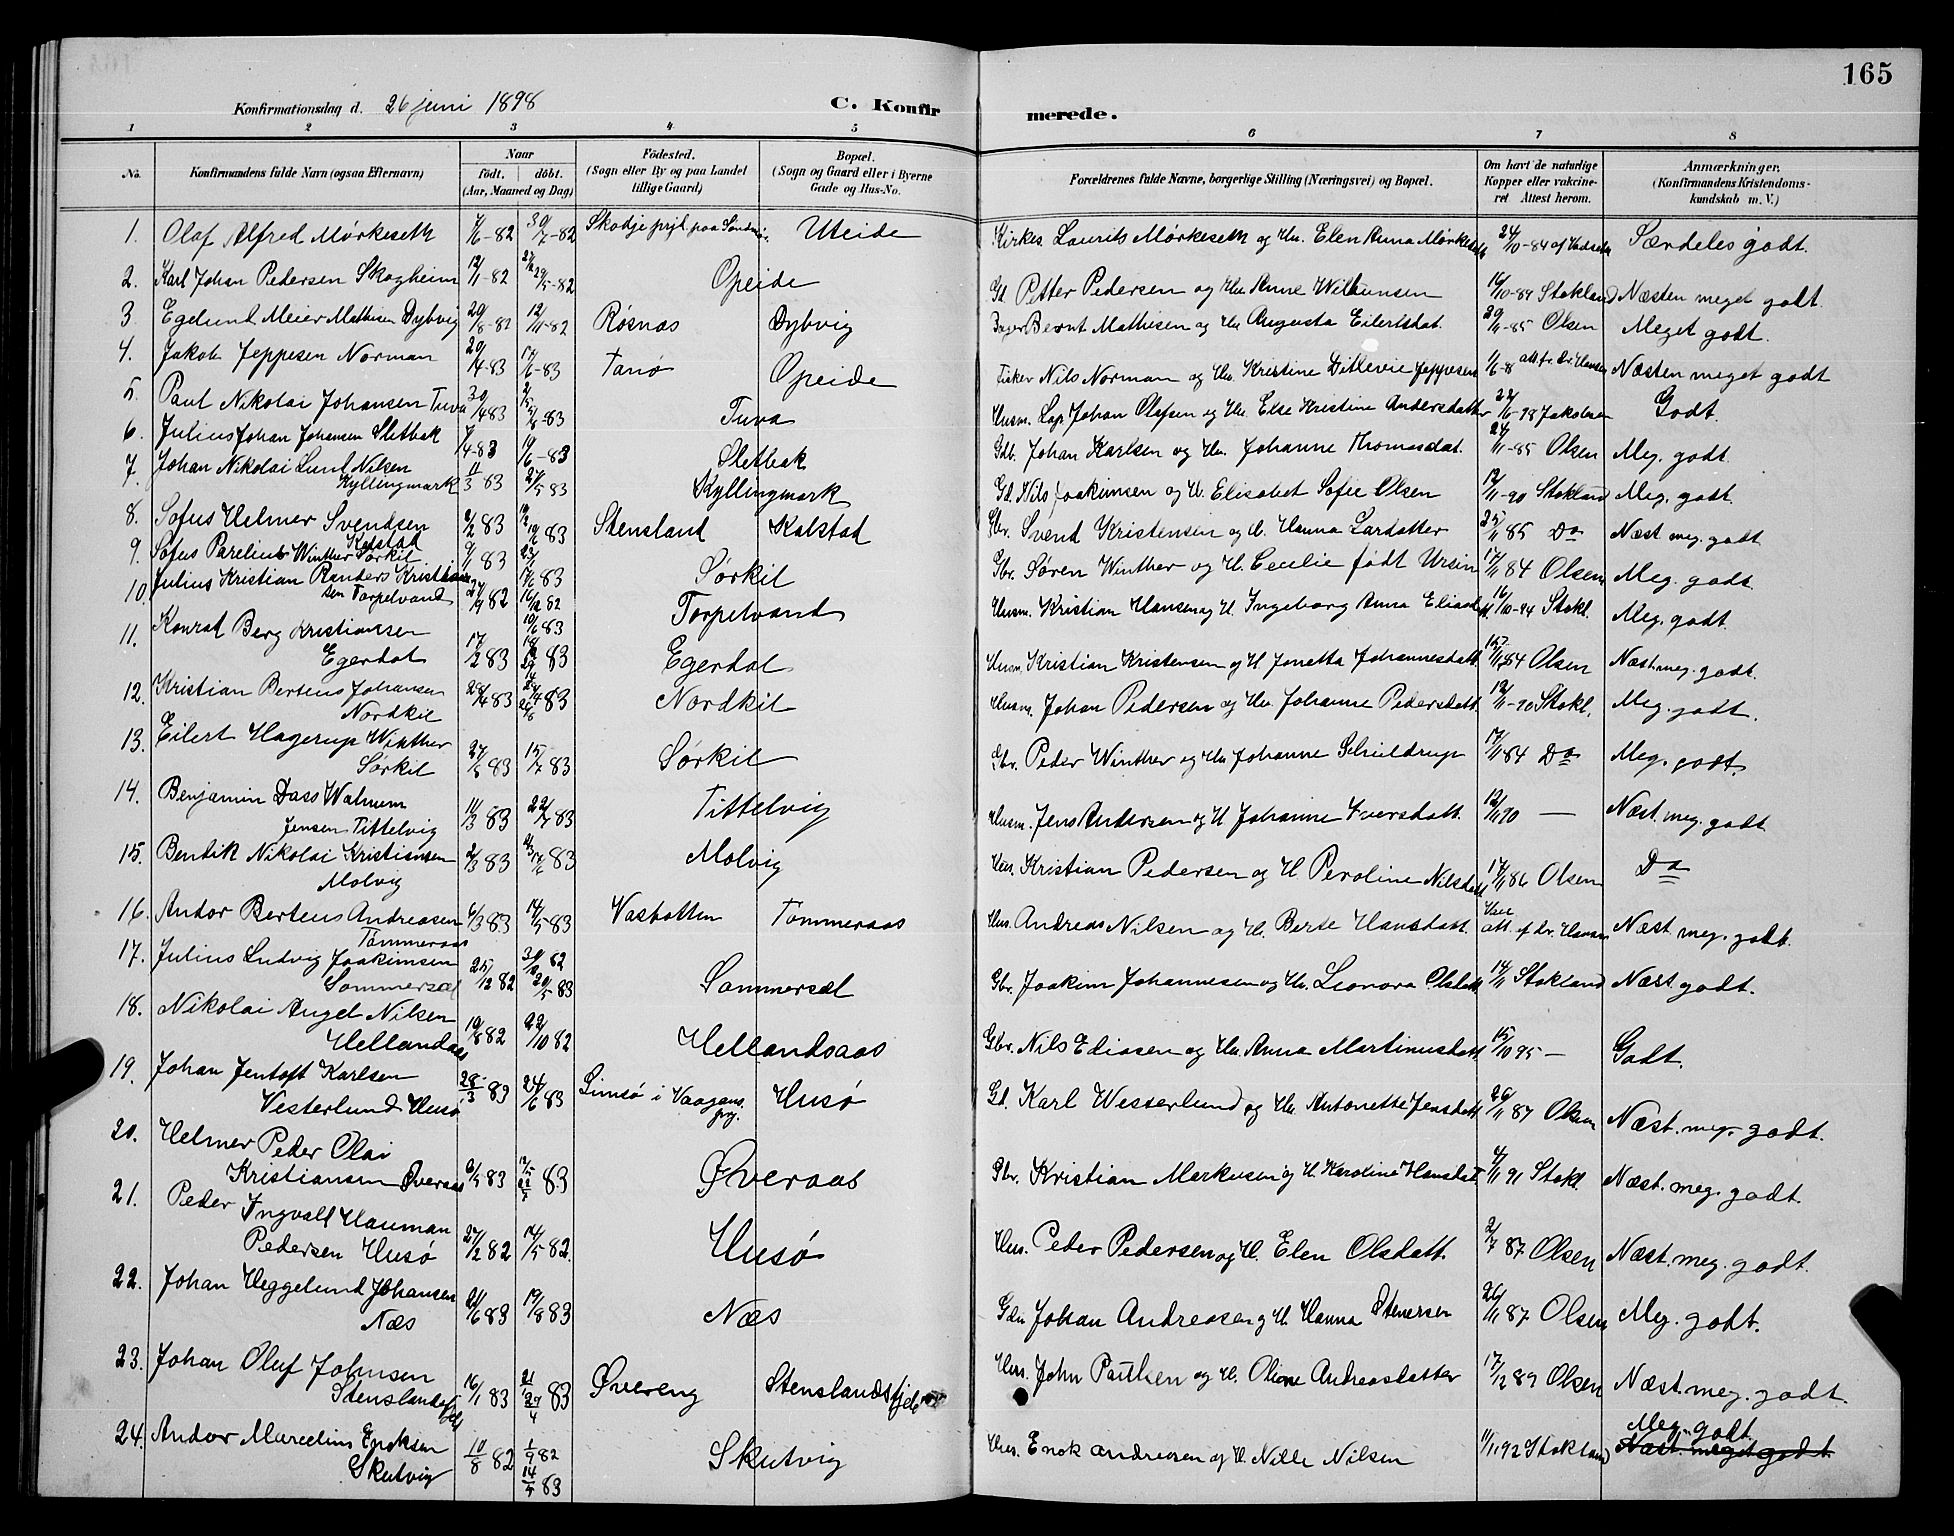 165
Konfirmationsdag d. 26 juni 1898
C. Konfirmerede.
1 2 3 4 5 6 7 8
No.
Konfirmandens fulde Navn (ogsaa Efternavn)
Naar
födt. döbt.
(Aar, Maaned og Dag)
Födested.
(Sogn eller By og paa Landet
tillige Gaard)
Bopæl.
(Sogn og Gaard eller i Byerne
Gade og Hus-No.
Forældrenes fulde Navne, borgerlige Stilling (Næringsvei) og Bopæl.
Om havt de naturlige
Kopper eller vakcine-
ret Attest herom.
Anmærkninger.
(Konfirmandens Kristendoms-
kundskab m. V.)
1. Olaf Alfred Mørkeseth 7/6-82 30/7-82 Skodje prgl. paa Uteide Kirkes. Laurits Mørkeseth og Hu. Elen Anna Mørkeseth 24/10-84 af Særdeles godt.
2. Karl Johan Pedersen Skogheim 12/1-82 29/5-82 Opeide Gd. Petter Pedersen og Hu Anne 16/10-84 Stokland Næsten meget godt.
3 Egelund Meier Mathisen Dybvig 20/8-82 12/11-82 Røsnæs Dybvig Bernt Mathisen og Hu Augusta Eilertsdat. 20/11-85 Olsen Meget godt.
4. Jakob Jeppesen Norman 20/4-83 17/6-83 Tanø Opeide Fisker Nils Norman og Hu. Kristine Ditlevie Jeppesen 1/6-8 att. fr. Dr. Hansen Næsten meget godt
5. Paul Nikolai Johansen Tuva 30/4 83 83 Tuva Husm. Lap Johan Olafsen og Hu. Else Kristine Andersdatter 22/6-98 Jakobsen Godt.
6. Julius Johan Johansen Sletbak 7/4-83 19/6-83 Sletbak Gdb. Johan Karlsen og Hu. Johanne Thomasdat. 24/11-85 Olsen Meg. godt.
7. Johan Nikolai Lund Nilsen
Kyllingmark 11/3 83 27/5 83 Kyllingmark Gd. Nils Joakimsen og H. Elisabet Sofie Olsen 12/11-90 Stokland Meg. godt.
8. Sofus Helmer Svendsen
Kalstad 2/2 83 19/6 83 Stensland Kalstad Gbr. Svend Kristensen og H. Hanna Larsdatter 25/11 85 Do Næst meg. godt
9. Sofus Parelius Winther Sørkil 9/1 83 17/6 83 Sørkil Gbr. Søren Winther og H. Cecilie født Ursin 17/11 84 Olsen Meg. godt.
10. Julius Kristian Randers Kristian-
sen Torpelvand 27/9 82 16/12 82
10/6 83 Torpelvand Husm. Kristian Hansen og H. Ingeborg Anna Eliasdt. 16/10-94 Stokl. Meg. godt.
11. Konrad Berg Kristiansen
Egerdal 17/2 83 83 Egerdal Husm. Kristian Kristensen og H Jonetta Johannesdatt. 84 Olsen Næst meg. godt.
12. Kristian Bertens Johansen
Nordkil 24/4 83 83 Nordkil Husm. Johan Pedersen og Hu. Johanne Pedersdatt. 12/11-90 Stokl. Meg. godt.
13. Eilert Hagerup Winther
Sørkil 27/5 83 15/7 83 Sørkil Gbr. Peder Winther og Hu Johanne Schjeldrup 17/11 84 Do Meg. godt.
14. Benjamin Dass Walnum
Jensen Tittelvig 11/3 83 22/7 83 Tittelvig Husm. Jens Andersen og H Johanne Iversdatt. 12/11 90 — Næst. meg. godt
15. Bendik Nikolai Kristiansen
Molvig 2/3 83 83 Molvig Hus. Kristian Pedersen og H Peroline Nilsdatt. 17/11 86 Olsen Do
16. Andor Bertens Andreasen
Tømmeraas 6/3 83 14/5 83 Vasbotten Tømmeraas Hus. Andreas Nilsen og H. Berte Hansdatt. att. af dr. Hansen Næst. meg. godt.
17. Julius Ludvig Joakimsen
Sommersæl 25/12 82 82
20/5 83 Sommersæl Gbr. Joakim Johannesen og Hu. Leonora Olsdatt. 14/11 Stokland Næst. godt.
18. Nikolai Angel Nilsen
Hellandsaas 19/8 82 22/10 82 Hellandsaas Gbr. Nils Ediasen og Hu. Anna Martinusdatt. 15/10 95 — Godt.
19. Johan Jentoft Karlsen
Vesterlund Husø 28/3 83 24/6 83 Limsø i Vaagans
prg. Husø Gd. Karl Westerlund og Hu. Antonette Jensdatt. 26/11 87 Olsen Næst. meg. godt.
20. Helmer Peder Olai
Kristiansen Øveraas 3/5 83 83 Øveraas Gbr. Kristian Markusen og H Karoline Hansdat. 4/11 91 Stokl. Næst. meg. godt.
21. Peder Ingvald Hauman
Pedersen Husø 27/2 82 14/5 82 Husø Hus. Peder Pedersen og H. Elen Olsdatt. 2/7 87 Olsen Næst. meg. godt.
22. Johan Heggelund Johansen
Næs 21/6 83 19/8 83 Næs Johan Andreasen og H Hanna Stenersen 26/11 87 Olsen Meg. godt.
23. Johan Oluf Johnsen
Stenslandsfjeld 16/1 83 83 Øvereng Stenslandsfjeld Hus. John Paulsen og H. Oline Andreasdatter 17/12 89 Olsen Næst. meg. godt.
24. Andor Marcelius Enoksen
Skutvig 10/8 82 1/9 82
14/5 83 Skutvig Hus. Enok Andreasen og H Nille Nilsen 11/11 92 Stokland Meg. godt.
Næst. meget godt.